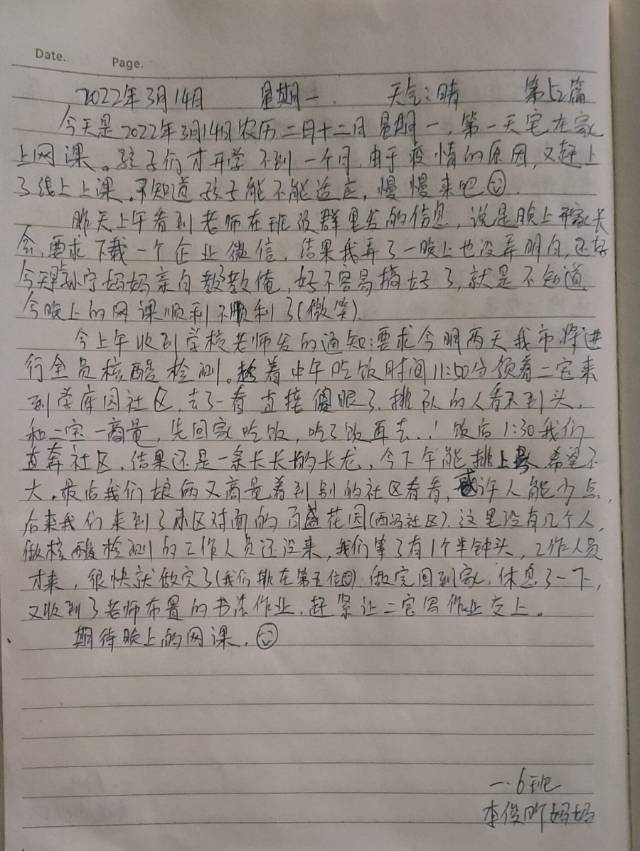 Date.
Page.
2022年3月14日 星期一 天气:晴 第52篇
今天是2022年3月14日农历二月十二日 星期一,第一天宅在家
上网课。孩子们才开学不到一个月,由于疫情的原因,又赶上
了线上上课。不知道孩子能不能适应,慢慢来吧
昨天上午看到老师在班级群里发的信息,说是晚上开家长
会,要求下载一个企业微信,结果我弄了一晚上也没弄明白,还好
今天 宁妈妈亲自教教俺,好不容易搞好了,就是不知道
今晚上的网课顺利不顺利了(微笑)
今上午收到学校老师发的通知:要求今明两天我市将进
行全员核酸检测。趁着中午吃饭时间11:00分领着二宝来
到 社区,去了一看直接傻眼了,排队的人看不到头,
和二宝一商量,先回家吃饭,吃了饭再去..!饭后1:30我们
直奔社区,结果还是一条长长的长龙,今下午能排上号希望不
大。最后我们娘俩又商量着到别的社区看看,或许人能少点,
后来我们来到了小区对面的百盛花园(西 社区),这里没有几个人,
做核酸检测的工作人员还没来,我们等了有1个半钟头,工作人员
才来,很快就做完了(我们排在第五位) 做完回到家,休息了一下,
又收到了老师布置的书法作业,赶紧让二宝写作业交上。
期待晚上的网课。
一.6班
李俊昕妈妈